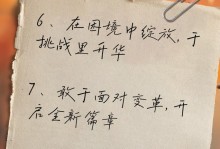 6、在困境中绽放，于
挑战里开华
7、敢于面对变革，开
启全新篇章